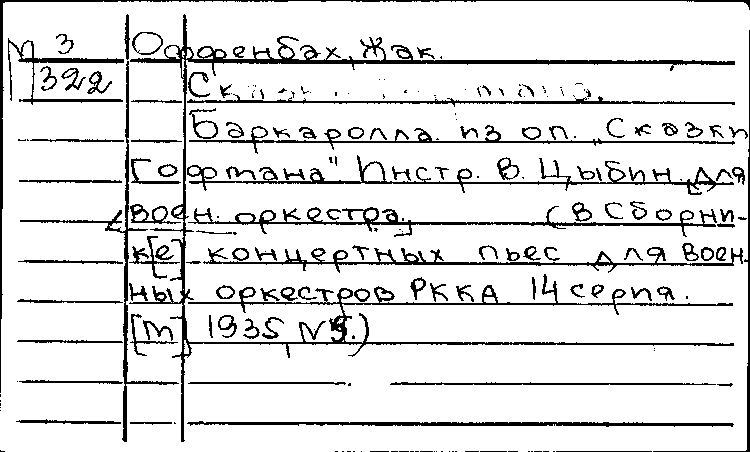 М 3
322
Оффенбах, Жак.
Баркаролла из оп. „Сказки
Гофмана" Инстр. В. Цыбин для
воен. оркестра. (В Сборни-
к[е] концертных пьес для воен-
ных оркестров РККА. 14 серия.
[М] 1935, №5.)